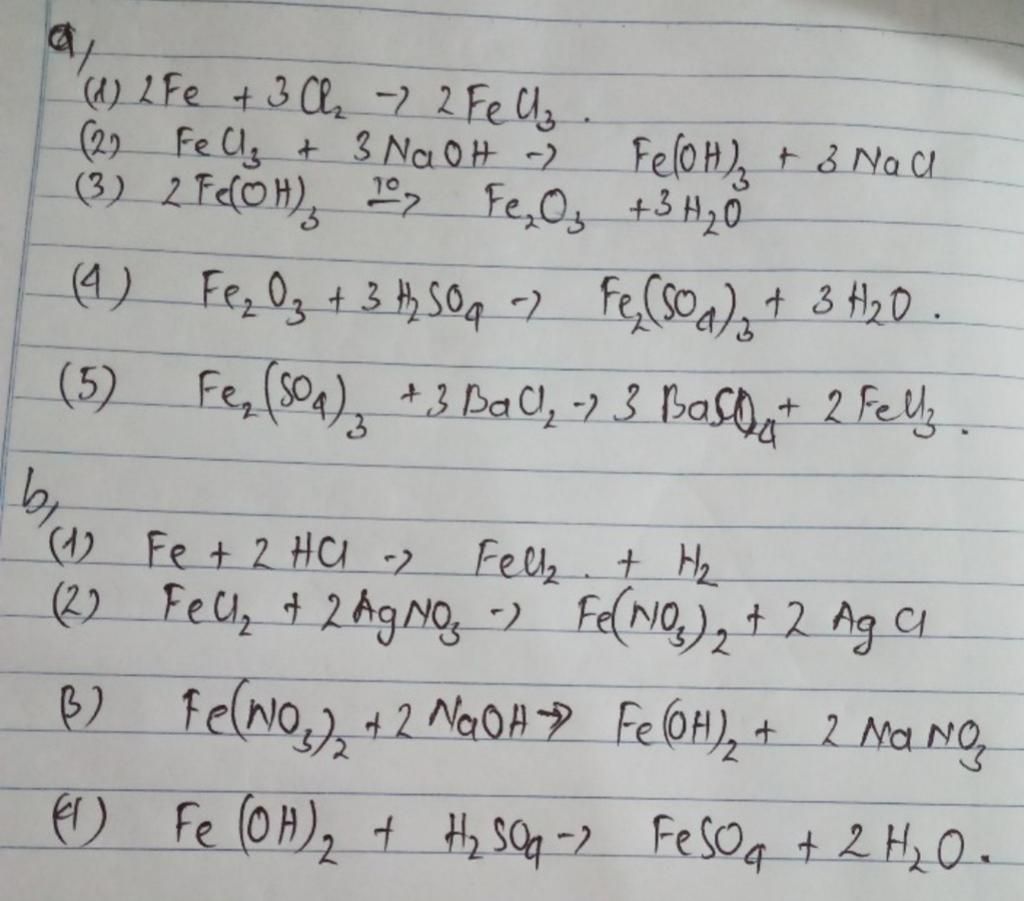 a,
(1) 2Fe + 3Cl₂ → 2FeCl₃.
(2) FeCl₃ + 3NaOH → Fe(OH)₃ + 3NaCl
(3) 2Fe(OH)₃ t⁰→ Fe₂O₃ + 3H₂O
(4) Fe₂O₃ + 3H₂SO₄ → Fe₂(SO₄)₃ + 3H₂O.
(5) Fe₂(SO₄)₃ + 3BaCl₂ → 3BaSO₄ + 2FeCl₃.
b,
(1) Fe + 2HCl → FeCl₂. + H₂
(2) FeCl₂ + 2AgNO₃ → Fe(NO₃)₂ + 2AgCl
(3) Fe(NO₃)₂ + 2NaOH → Fe(OH)₂ + 2NaNO₃
(4) Fe(OH)₂ + H₂SO₄ → FeSO₄ + 2H₂O.